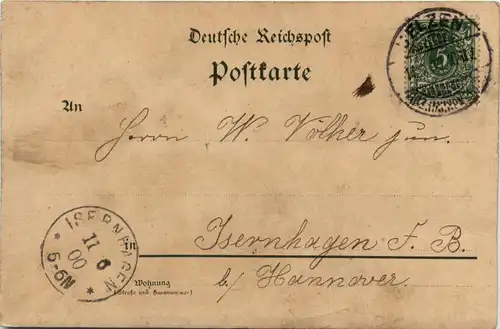 Deutsche Reichspost
Postkarte
UELZEN
5
An
Herrn W. Völker jun.
in
Isernhagen F. B.
b/ Hannover.
Wohnung
(Straße und Hausnummer)
* ISERNHAGEN *
11 6
00
5-6N